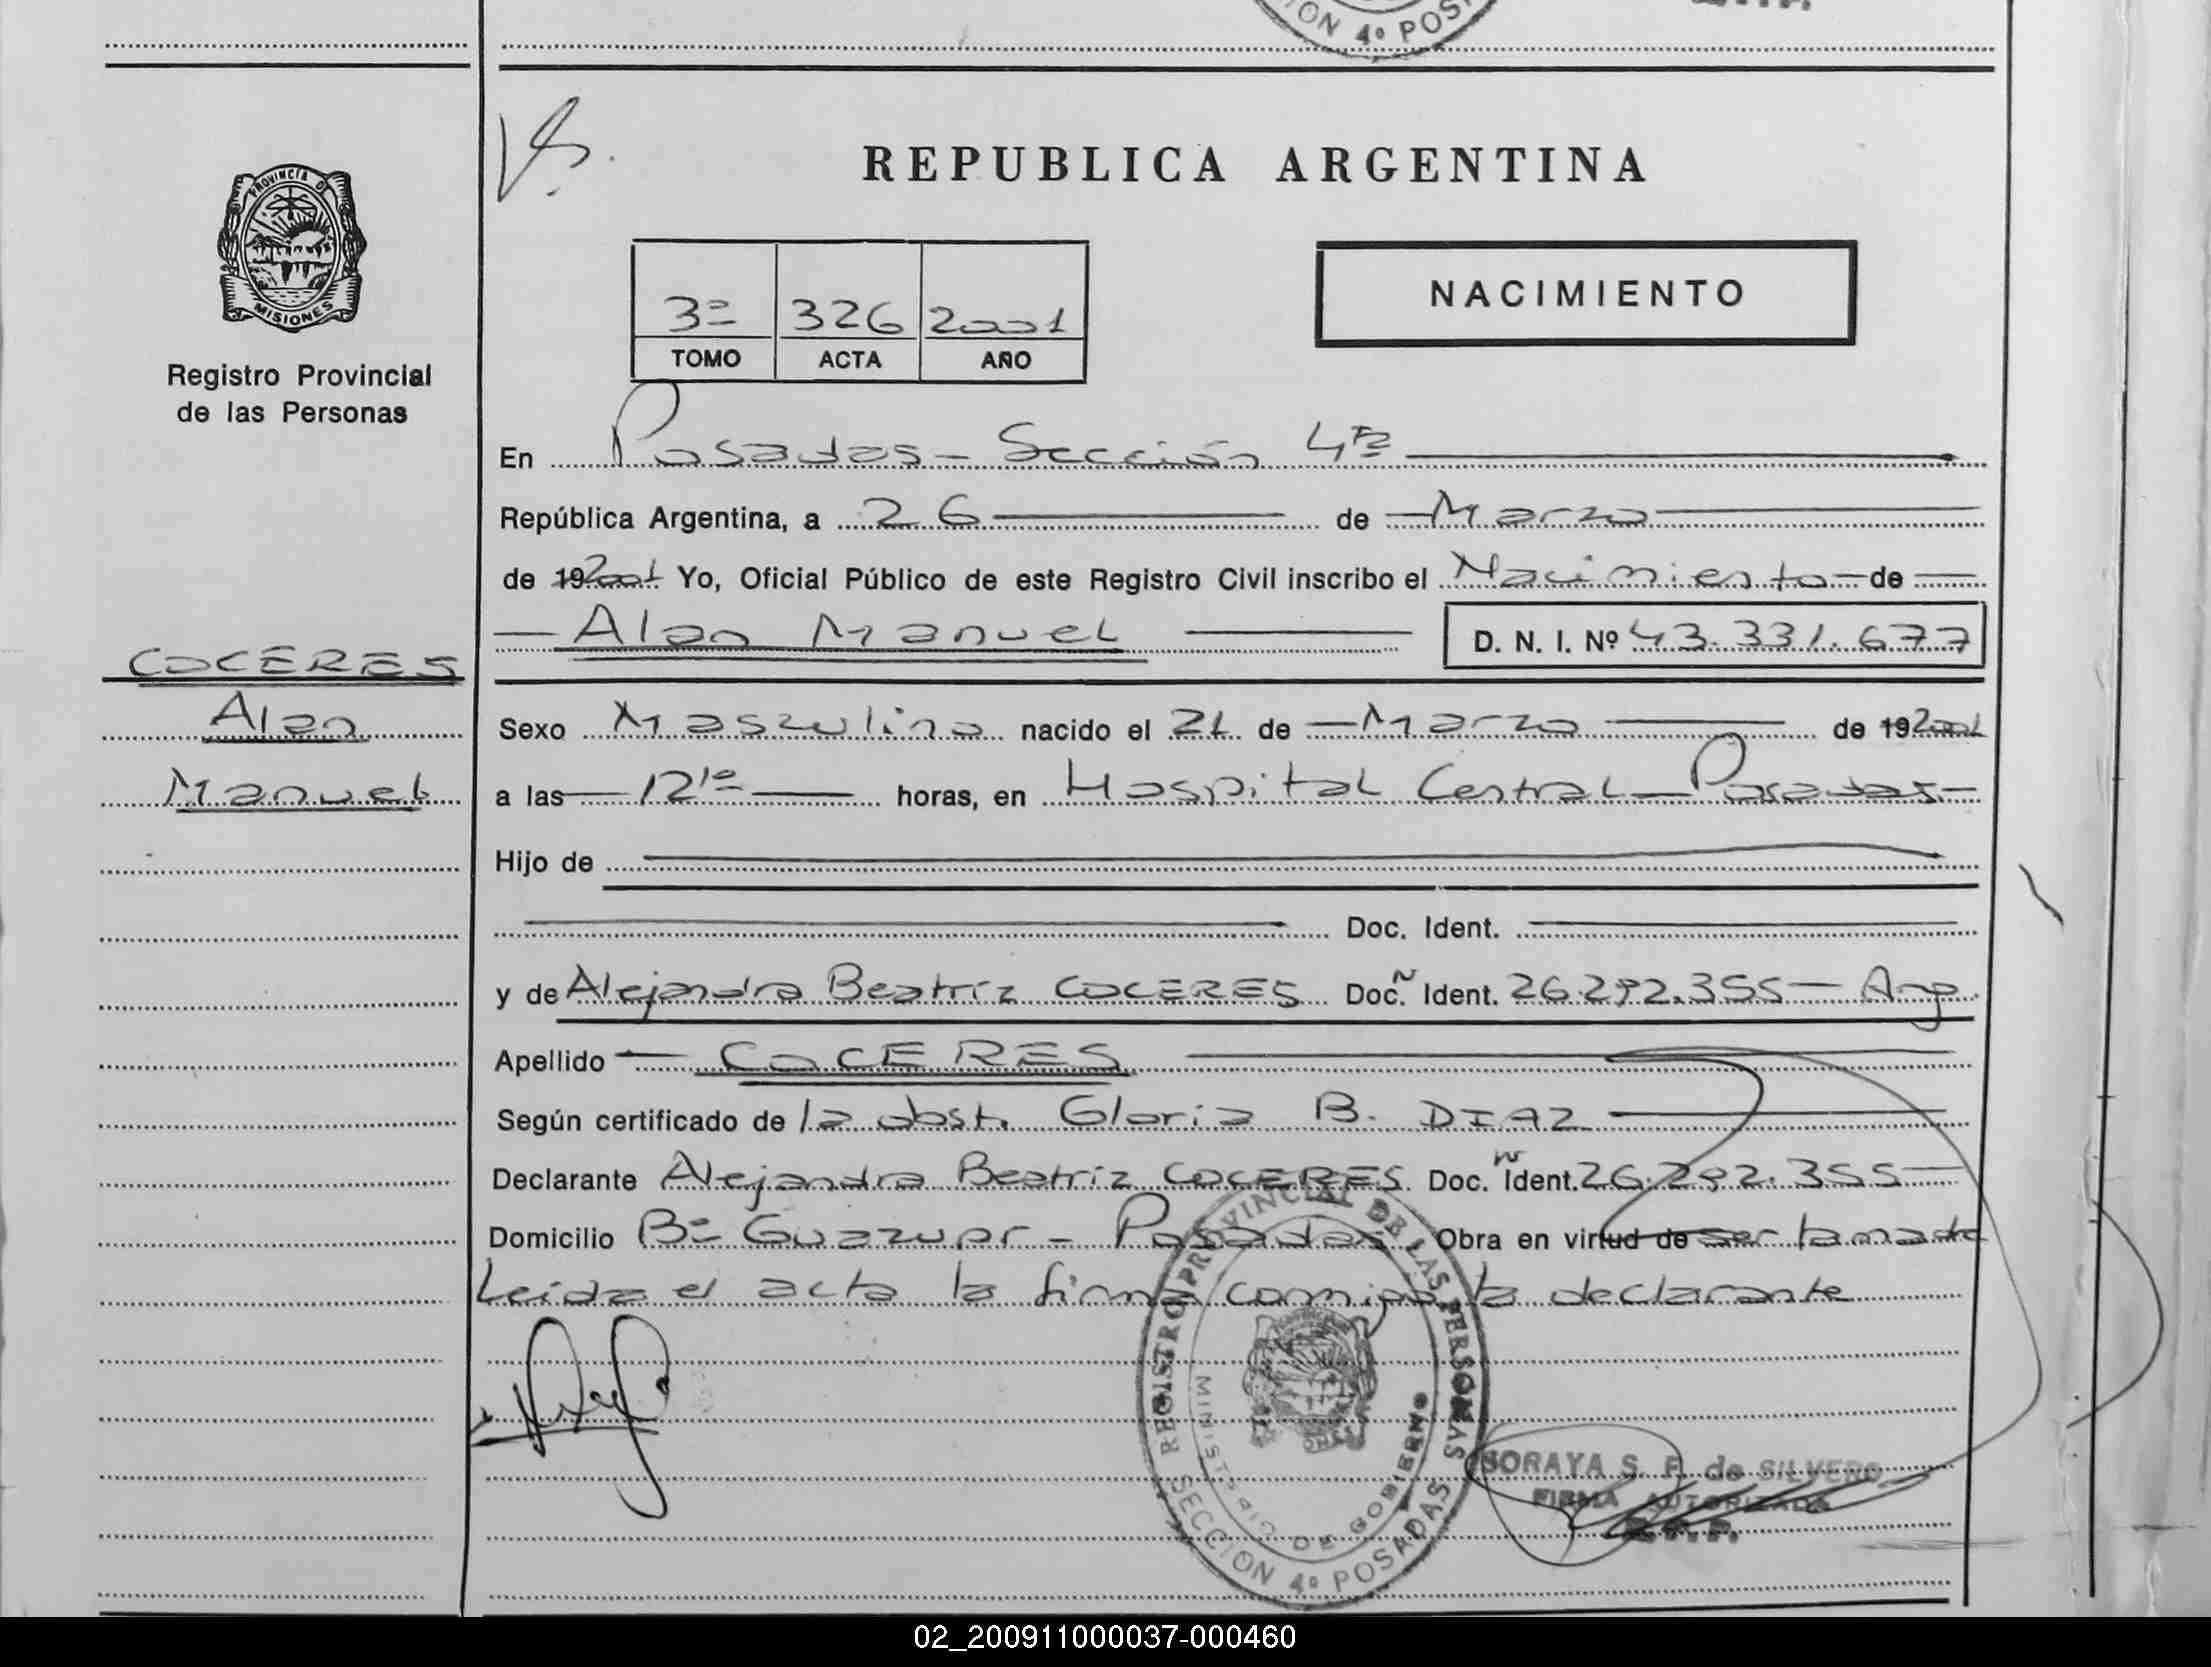 ION 4º POS
PROVINCIA DE
MISIONES
Registro Provincial
de las Personas
REPUBLICA ARGENTINA
NACIMIENTO
3º 326 2001
TOMO ACTA AÑO
En Posadas - Sección 4ta
República Argentina, a 26 de Marzo
de 19 2001 Yo, Oficial Público de este Registro Civil inscribo el Nacimiento de
Alan Manuel D. N. I. Nº 43.331.677
COCERES
Alan
Manuel
Sexo Masculino nacido el 21 de Marzo de 19 2001
a las 12 horas, en Hospital Central - Posadas -
Hijo de
Doc. Ident.
y de Alejandra Beatriz COCERES Doc. Ident. 26.292.355 - Arg
Apellido COCERES
Según certificado de la obst. Gloria B. DIAZ
Declarante Alejandra Beatriz COCERES Doc. Ident. 26.292.355
Domicilio Bº Guazupr - Posadas Obra en virtud de ser la madre
Leída el acta la firma conmigo la declarante
REGISTRO PROVINCIAL DE LAS PERSONAS
MINISTERIO DE GOBIERNO
SECCION 4º POSADAS
SORAYA S. F. de SILVERO
FIRMA AUTORIZADA
R.P.P.
02_200911000037-000460